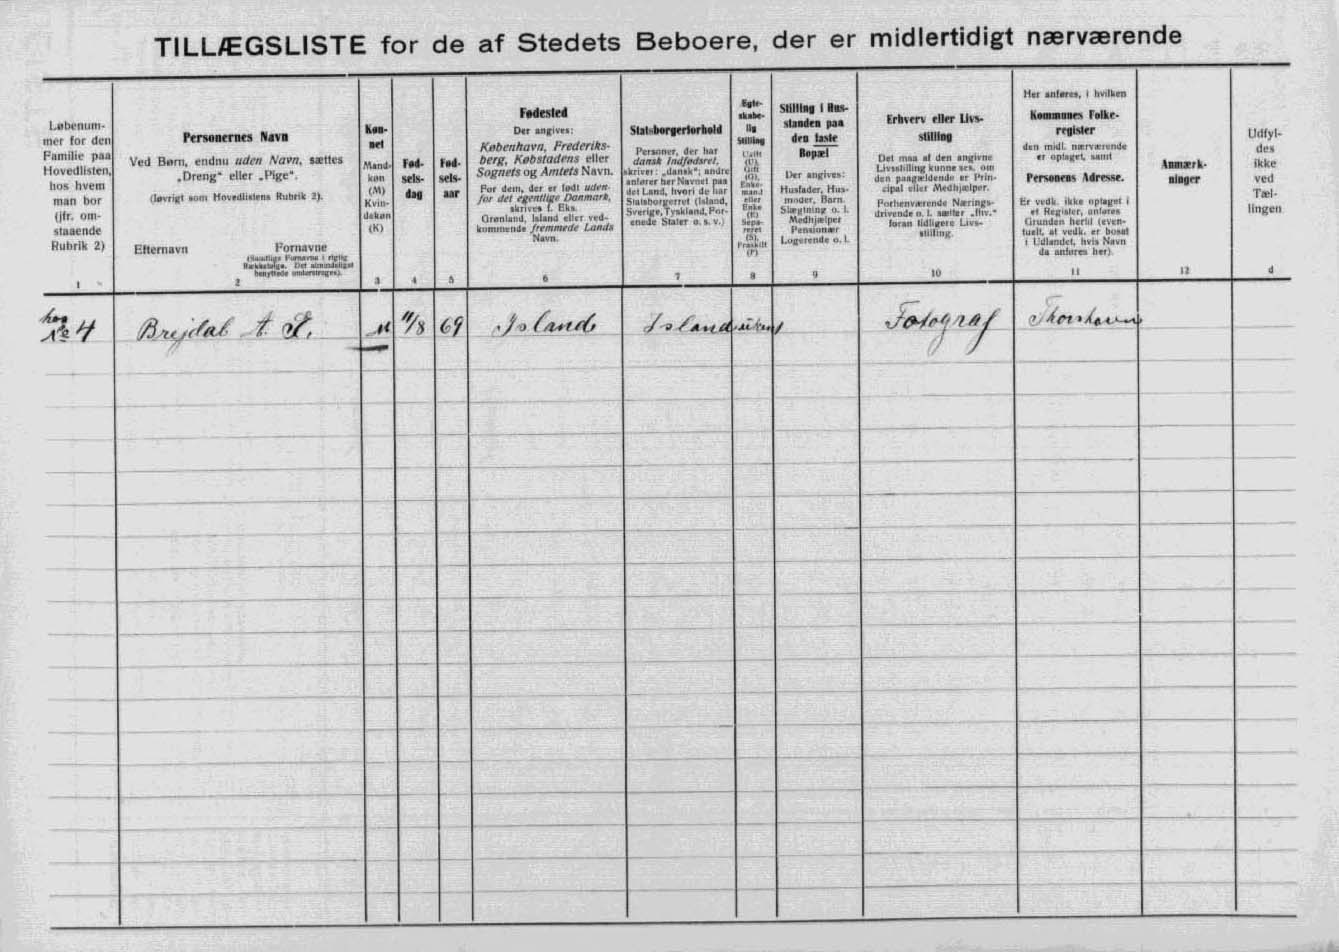 TILLÆGSLISTE for de af Stedets Beboere, der er midlertidigt nærværende
Løbenum-
mer for den
Familie paa
Hovedlisten,
hos hvem
man bor
(jfr. om-
staaende
Rubrik 2)
1
Personernes Navn
Ved Børn, endnu uden Navn, sættes
„Dreng“ eller „Pige“.
(Iøvrigt som Hovedlistens Rubrik 2).
Efternavn
Fornavne
(Samtlige Fornavne i rigtig
Rækkefølge. Det almindeligst
benyttede understreges).
2
Køn-
net
Mand-
køn
(M)
Kvin-
dekøn
(K)
3
Fød-
sels-
dag
4
Fød-
sels-
aar
5
Fødested
Der angives:
København, Frederiks-
berg, Købstadens eller
Sognets og Amtets Navn.
For dem, der er født uden-
for det egentlige Danmark,
skrives f. Eks.
Grønland, Island eller ved-
kommende fremmede Lands
Navn.
6
Statsborgerforhold
Personer, der har
dansk Indfødsret,
skriver: „dansk“; andre
anfører her Navnet paa
det Land, hvori de har
Statsborgerret (Island,
Sverige, Tyskland, For-
enede Stater o. s. v.)
7
Egte-
skabe-
lig
Stilling
Ugift
(U),
Gift
(G),
Enke-
mand
eller
Enke
(E)
Sepa-
reret
(S),
Fraskilt
(F)
8
Stilling i Hus-
standen paa
den faste
Bopæl
Der angives:
Husfader, Hus-
moder, Barn,
Slægtning o. l.
Medhjælper
Pensionær
Logerende o. l.
9
Erhverv eller Livs-
stilling
Det maa af den angivne
Livsstilling kunne ses, om
den paagældende er Prin-
cipal eller Medhjælper.
Forhenværende Nærings-
drivende o. l. sætter „fhv.“
foran tidligere Livs-
stilling.
10
Her anføres, i hvilken
Kommunes Folke-
register
den midl. nærværende
er optaget, samt
Personens Adresse.
Er vedk. ikke optaget i
et Register, anføres
Grunden hertil (even-
tuelt, at vedk. er bosat
i Udlandet, hvis Navn
da anføres her).
11
Anmærk-
ninger
12
Udfyl-
des
ikke
ved
Tæl-
lingen
d
hos
No 4 Brejdal A. M 11/8 69 Island Island Fotograf Thorshavn